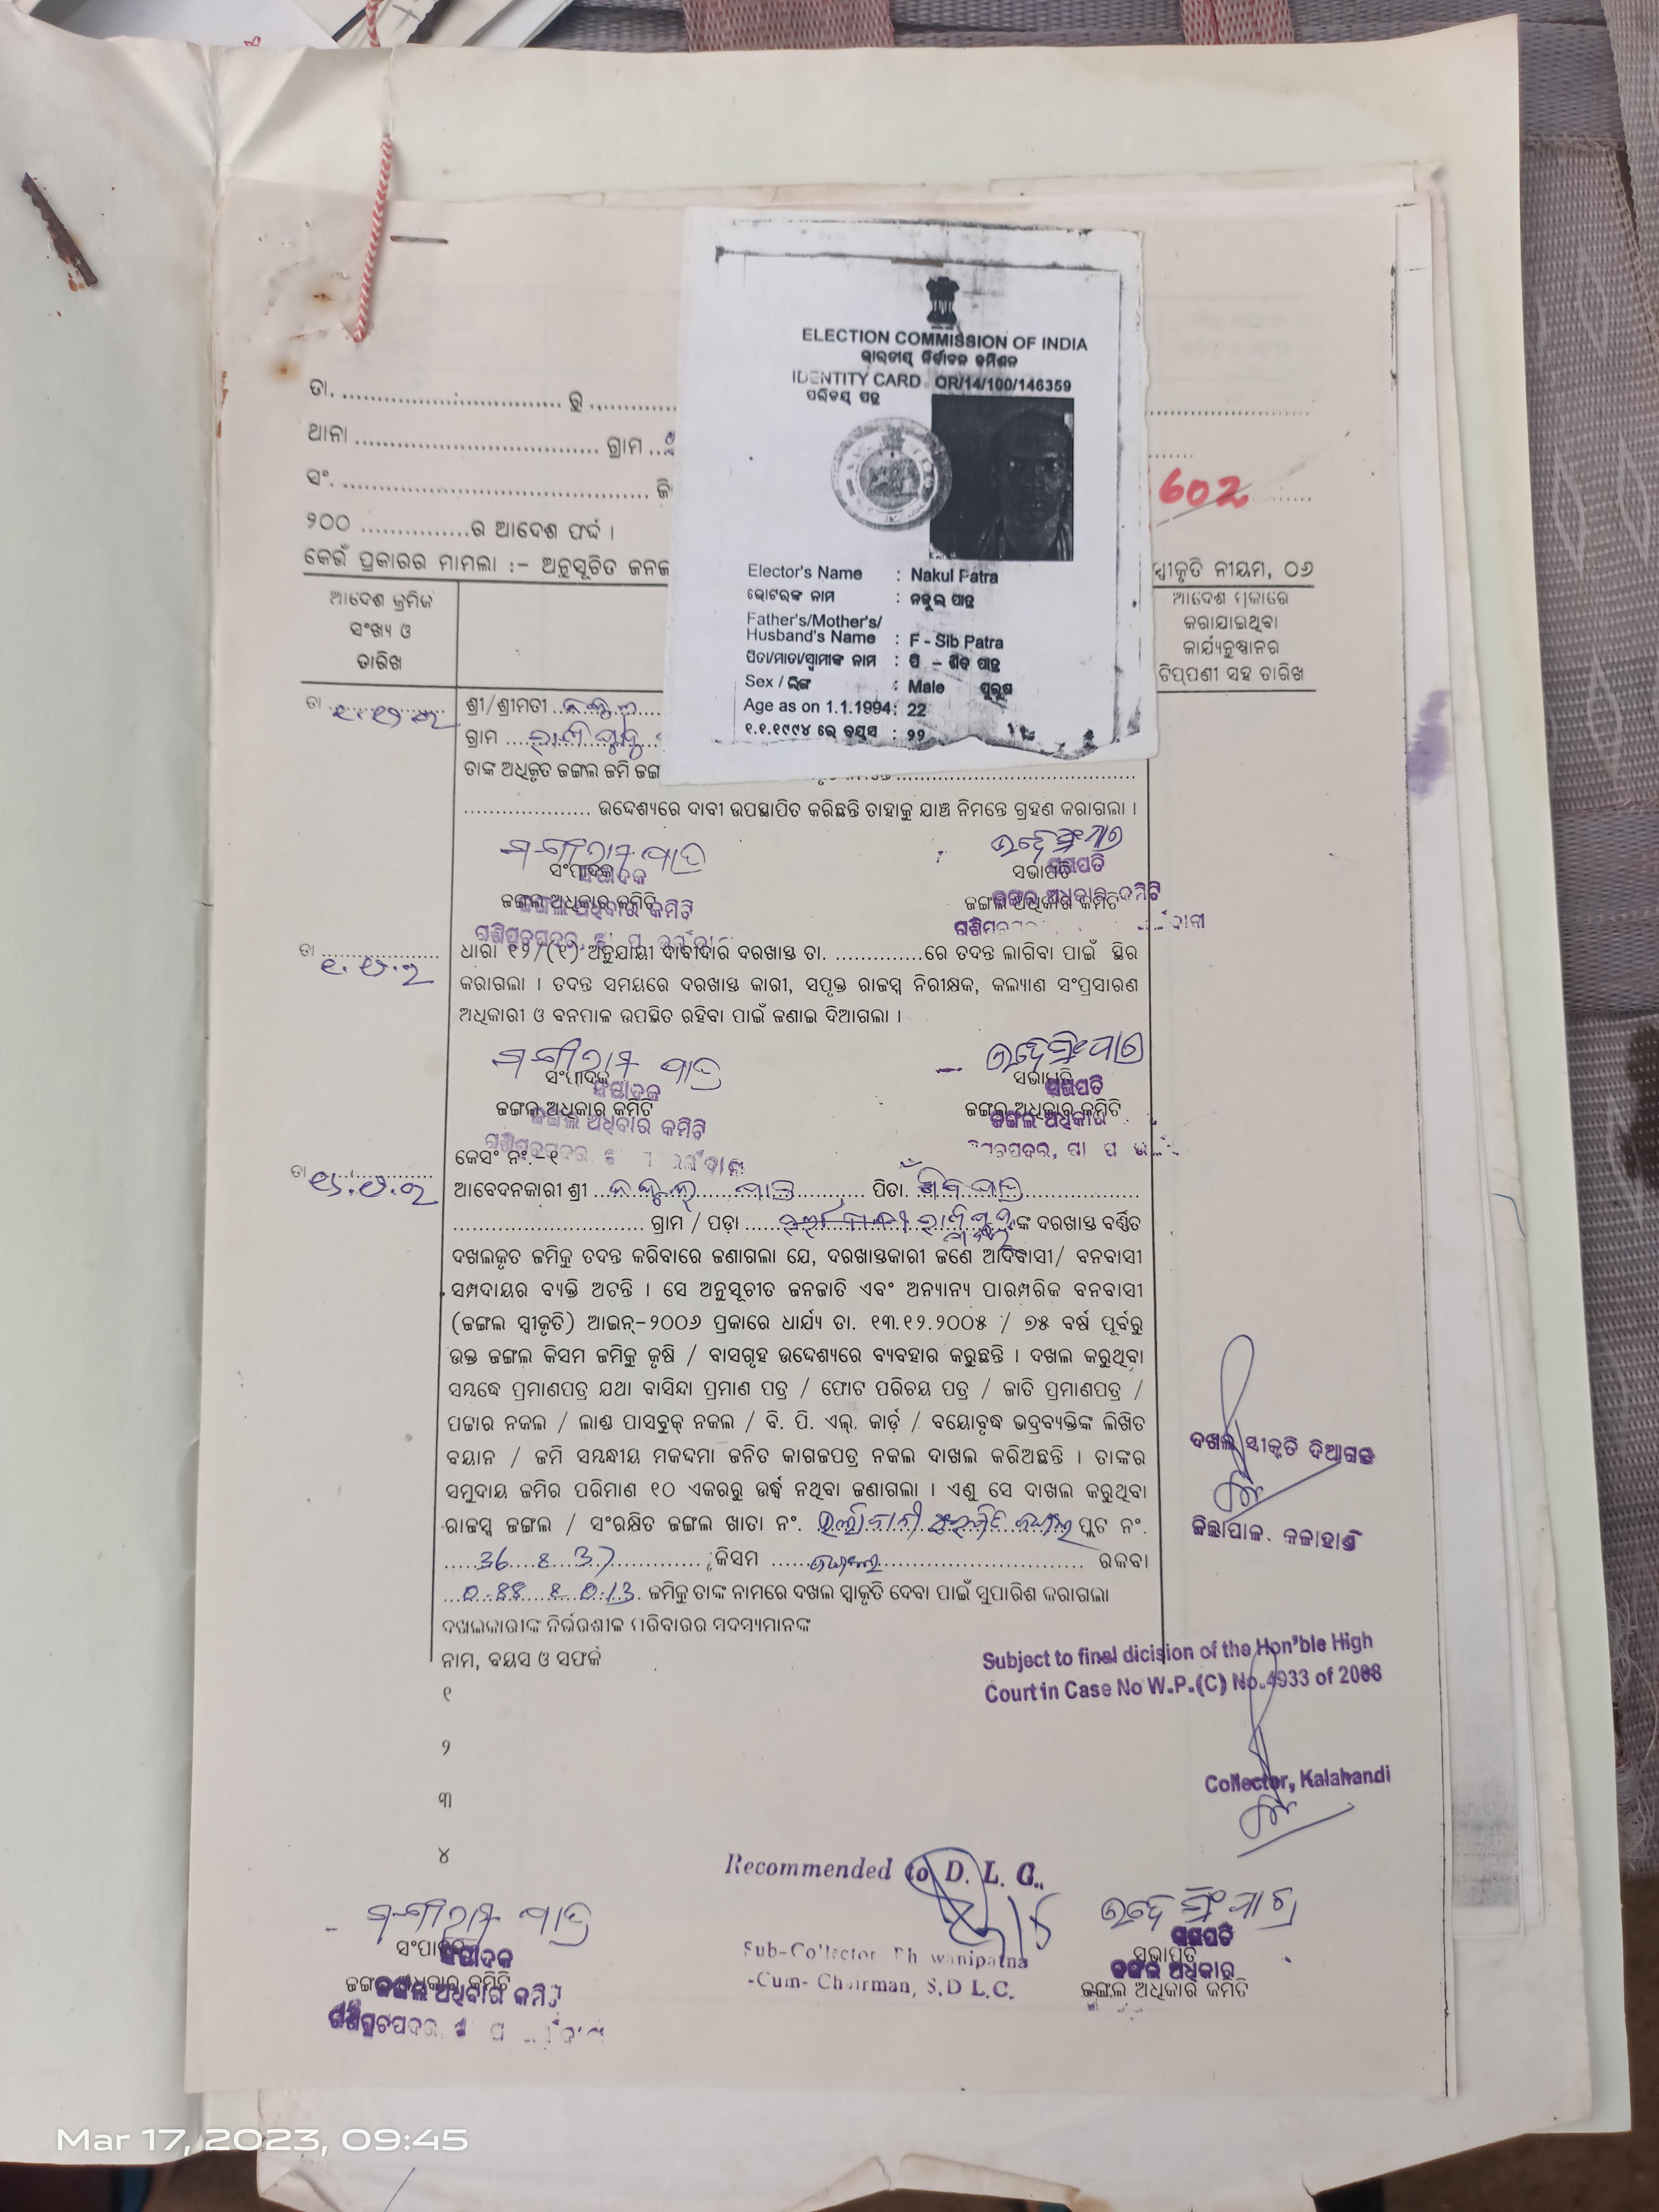 ELECTION COMMISSION OF INDIA
ଭାରତୀୟ ନିର୍ବାଚନ କମିଶନ
IDENTITY CARD OR/14/100/146359
ପରିଚୟ ପତ୍ର
ତା. .............................. ରୁ ............
ଥାନା ................................. ଗ୍ରାମ ...
ସଂ. ..........................................
602
୨୦୦ ...............ର ଆଦେଶ ଫର୍ଦ୍ଦ ।
କେଉଁ ପ୍ରକାରର ମାମଲା :- ଅନୁସୂଚିତ ଜନଜ
ସ୍ୱୀକୃତି ନୀୟମ, ୦୬
Elector's Name : Nakul Patra
ଭୋଟରଙ୍କ ନାମ : ନକୁଲ ପାତ୍ର
Father's/Mother's/
Husband's Name : F - Sib Patra
ପିତା/ମାତା/ସ୍ୱାମୀଙ୍କ ନାମ : ପି - ଶିବ ପାତ୍ର
Sex / ଲିଙ୍ଗ : Male ପୁରୁଷ
Age as on 1.1.1994: 22
୧.୧.୧୯୯୪ ରେ ବୟସ : ୨୨
ଆଦେଶ କ୍ରମିକ
ସଂଖ୍ୟ ଓ
ତାରିଖ
ଆଦେଶ ପ୍ରକାରେ
କରାଯାଇଥିବା
କାର୍ଯ୍ୟନୁଷ୍ଠାନର
ଟିପ୍ପଣୀ ସହ ତାରିଖ
ତା ..................
ଶ୍ରୀ/ଶ୍ରୀମତୀ ..ନକୁଲ....
ଗ୍ରାମ ...
ତାଙ୍କ ଅଧିକୃତ ଜଙ୍ଗଲ ଜମି ଜଙ୍ଗ
.................... ଉଦ୍ଦେଶ୍ୟରେ ଦାବୀ ଉପସ୍ଥାପିତ କରିଛନ୍ତି ତାହାକୁ ଯାଞ୍ଚ ନିମନ୍ତେ ଗ୍ରହଣ କରାଗଲା ।
ସଂପାଦକ ସଭାପତି
ଜଙ୍ଗଲ ଅଧିକାର କମିଟି ଜଙ୍ଗଲ ଅଧିକାର କମିଟି
ତା ..................
ଧାରା ୧୨/(୧) ଅନୁଯାୟୀ ଦାବୀଦାର ଦରଖାସ୍ତ ତା. ..............ରେ ତଦନ୍ତ ଲାଗିବା ପାଇଁ ସ୍ଥିର
କରାଗଲା । ତଦନ୍ତ ସମୟରେ ଦରଖାସ୍ତ କାରୀ, ସପୃକ୍ତ ରାଜସ୍ୱ ନିରୀକ୍ଷକ, କଲ୍ୟାଣ ସଂପ୍ରସାରଣ
ଅଧିକାରୀ ଓ ବନପାଳ ଉପସ୍ଥିତ ରହିବା ପାଇଁ ଜଣାଇ ଦିଆଗଲା ।
ସଂପାଦକ ସଭାପତି
ଜଙ୍ଗଲ ଅଧିକାର କମିଟି ଜଙ୍ଗଲ ଅଧିକାର କମିଟି
କେସଂ ନଂ.-୧
ତା ..................
ଆବେଦନକାରୀ ଶ୍ରୀ ..ନକୁଲ ପାତ୍ର.......... ପିତା. ଶିବ ପାତ୍ର................
........................... ଗ୍ରାମ / ପଡ଼ା ... ଙ୍କ ଦରଖାସ୍ତ ବର୍ଣ୍ଣିତ
ଦଖଲକୃତ ଜମିକୁ ତଦନ୍ତ କରିବାରେ ଜଣାଗଲା ଯେ, ଦରଖାସ୍ତକାରୀ ଜଣେ ଆଦିବାସୀ/ ବନବାସୀ
ସମ୍ପଦାୟର ବ୍ୟକ୍ତି ଅଟନ୍ତି । ସେ ଅନୁସୂଚୀତ ଜନଜାତି ଏବଂ ଅନ୍ୟାନ୍ୟ ପାରମ୍ପରିକ ବନବାସୀ
(ଜଙ୍ଗଲ ସ୍ୱୀକୃତି) ଆଇନ୍-୨୦୦୬ ପ୍ରକାରେ ଧାର୍ଯ୍ୟ ତା. ୧୩.୧୨.୨୦୦୫ / ୭୫ ବର୍ଷ ପୂର୍ବରୁ
ଉକ୍ତ ଜଙ୍ଗଲ କିସମ ଜମିକୁ କୃଷି / ବାସଗୃହ ଉଦ୍ଦେଶ୍ୟରେ ବ୍ୟବହାର କରୁଛନ୍ତି । ଦଖଲ କରୁଥିବା
ସମ୍ବନ୍ଧେ ପ୍ରମାଣପତ୍ର ଯଥା ବାସିନ୍ଦା ପ୍ରମାଣ ପତ୍ର / ଫୋଟ ପରିଚୟ ପତ୍ର / ଜାତି ପ୍ରମାଣପତ୍ର /
ପଟ୍ଟାର ନକଲ / ଲାଣ୍ଡ ପାସବୁକ୍ ନକଲ / ବି. ପି. ଏଲ୍. କାର୍ଡ଼ / ବୟୋବୃଦ୍ଧ ଭଦ୍ରବ୍ୟକ୍ତିଙ୍କ ଲିଖିତ
ବୟାନ / ଜମି ସମ୍ବନ୍ଧୀୟ ମକଦ୍ଦମା ଜନିତ କାଗଜପତ୍ର ନକଲ ଦାଖଲ କରିଅଛନ୍ତି । ତାଙ୍କର
ସମୁଦାୟ ଜମିର ପରିମାଣ ୧୦ ଏକରରୁ ଉର୍ଦ୍ଧ୍ୱ ନଥିବା ଜଣାଗଲା । ଏଣୁ ସେ ଦାଖଲ କରୁଥିବା
ରାଜସ୍ୱ ଜଙ୍ଗଲ / ସଂରକ୍ଷିତ ଜଙ୍ଗଲ ଖାତା ନଂ. ପ୍ଲଟ ନଂ.
.....36 & 37............. ;କିସମ ...ଜଙ୍ଗଲ............. ରକବା
..0.88 & 0.13. ଜମିକୁ ତାଙ୍କ ନାମରେ ଦଖଲ ସ୍ୱୀକୃତି ଦେବା ପାଇଁ ସୁପାରିଶ କରାଗଲା
ଦଖଲକାରୀଙ୍କ ନିର୍ଭରଶୀଳ ପରିବାରର ସଦସ୍ୟମାନଙ୍କ
ନାମ, ବୟସ ଓ ସଫର୍କ
ଦଖଲ ସ୍ୱୀକୃତି ଦିଆଗଲା
ଜିଲ୍ଲାପାଳ. କଳାହାଣ୍ଡି
Subject to final dicision of the Hon'ble High
Court in Case No W.P.(C) No.4933 of 2008
୧
୨
୩
୪
Collector, Kalahandi
Recommended to D. L. C.
Sub-Collector Bhawanipatna
-Cum- Chairman, S.D L.C.
ସଂପାଦକ ସଭାପତି
ଜଙ୍ଗଲ ଅଧିକାର କମିଟି ଜଙ୍ଗଲ ଅଧିକାର କମିଟି
Mar 17, 2023, 09:45